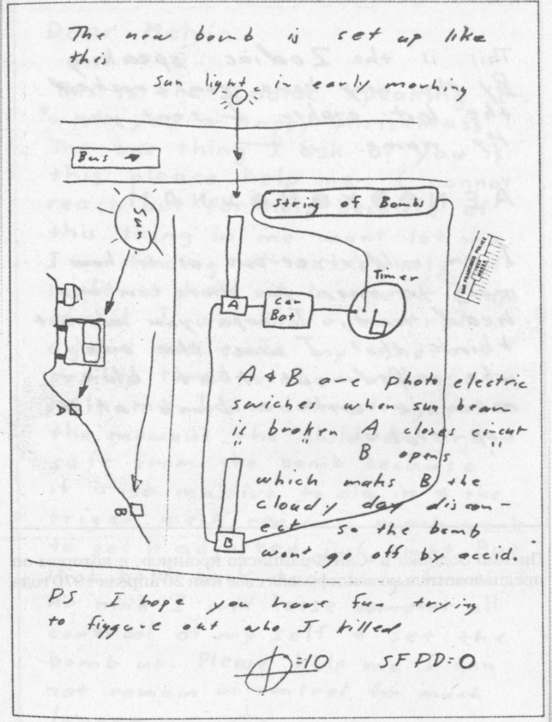 The new bomb is set up like
this
Sun light in early morning
Bus
Sun
String of Bombs
A
Car
Bat
Timer
A
B
A & B are photo electric
swiches when sun beam
is broken A closes circut
" " B opens "
which maks B the
cloudy day discon-
ect so the bomb
wont go off by accid.
B
PS I hope you have fun trying
to figgure out who I killed
=10 SFPD=0